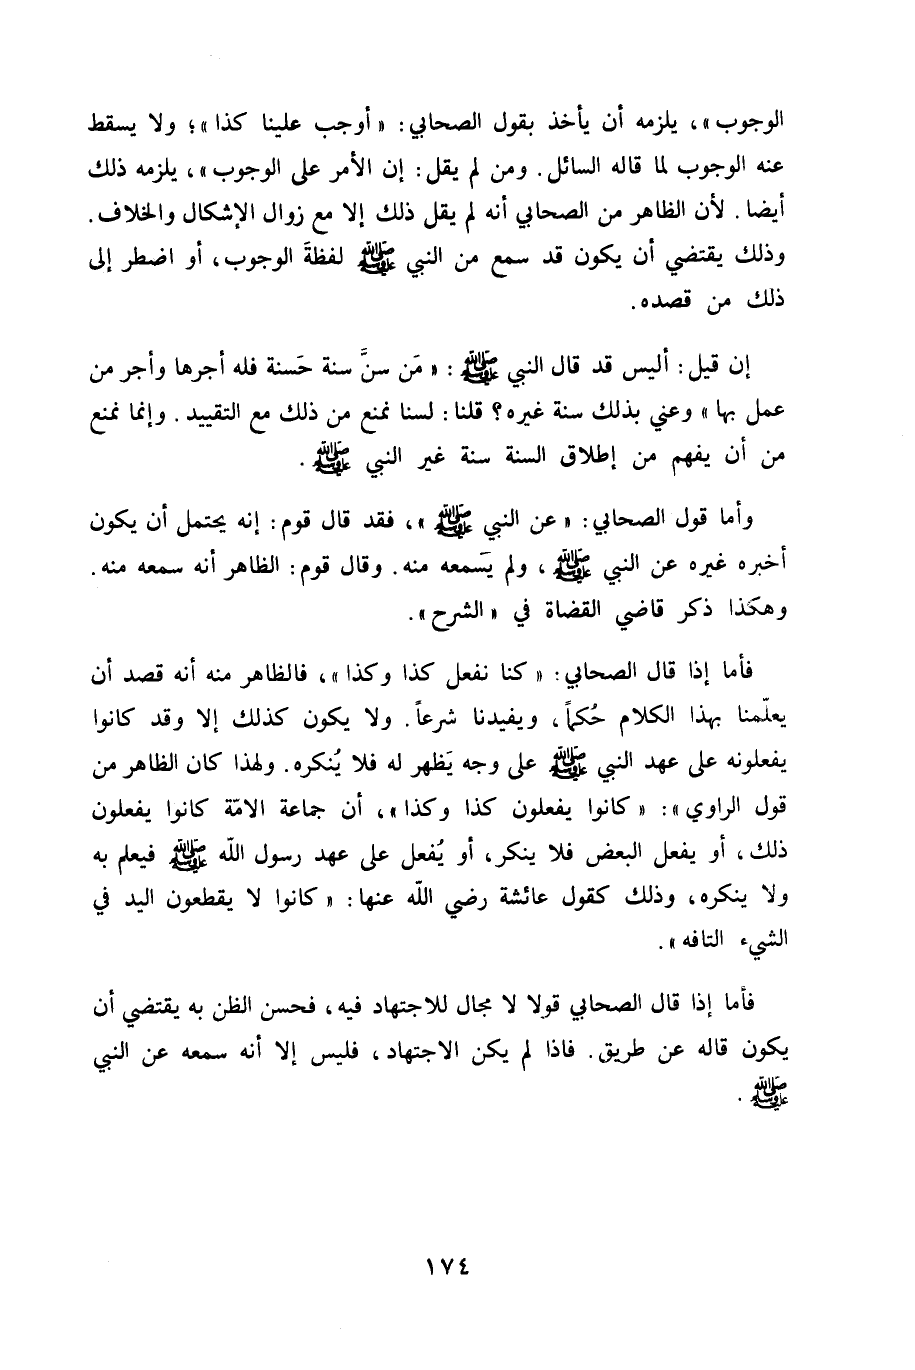 الوجوب»، يلزمه أن يأخذ بقول الصحابي: «أوجب علينا كذا»؛ ولا يسقط
عنه الوجوب لما قاله السائل. ومن لم يقل: إن الأمر على الوجوب»، يلزمه ذلك
أيضا. لأن الظاهر من الصحابي أنه لم يقل ذلك إلا مع زوال الإشكال والخلاف.
وذلك يقتضي أن يكون قد سمع من النبي ﷺ لفظةَ الوجوب، أو اضطر إلى
ذلك من قصده.
إن قيل: أليس قد قال النبي ﷺ: «مَن سنَّ سنة حَسنة فله أجرها وأجر من
عمل بها» وعني بذلك سنة غيره؟ قلنا: لسنا نمنع من ذلك مع التقييد. وإنما نمنع
من أن يفهم من إطلاق السنة سنة غير النبي ﷺ.
وأما قول الصحابي: «عن النبي ﷺ»، فقد قال قوم: إنه يحتمل أن يكون
أخبره غيره عن النبي ﷺ، ولم يَسمعه منه. وقال قوم: الظاهر أنه سمعه منه.
وهكذا ذكر قاضي القضاة في «الشرح».
فأما إذا قال الصحابي: «كنا نفعل كذا وكذا»، فالظاهر منه أنه قصد أن
يعلّمنا بهذا الكلام حُكماً، ويفيدنا شرعاً. ولا يكون كذلك إلا وقد كانوا
يفعلونه على عهد النبي ﷺ على وجه يَظهر له فلا يُنكره. ولهذا كان الظاهر من
قول الراوي»: «كانوا يفعلون كذا وكذا»، أن جماعة الامّة كانوا يفعلون
ذلك، أو يفعل البعض فلا ينكر، أو يُفعل على عهد رسول اللّه ﷺ فيعلم به
ولا ينكره، وذلك كقول عائشة رضي اللّه عنها: «كانوا لا يقطعون اليد في
الشيء التافه».
فأما إذا قال الصحابي قولا لا مجال للاجتهاد فيه، فحسن الظن به يقتضي أن
يكون قاله عن طريق. فاذا لم يكن الاجتهاد، فليس إلا أنه سمعه عن النبي
ﷺ.
١٧٤